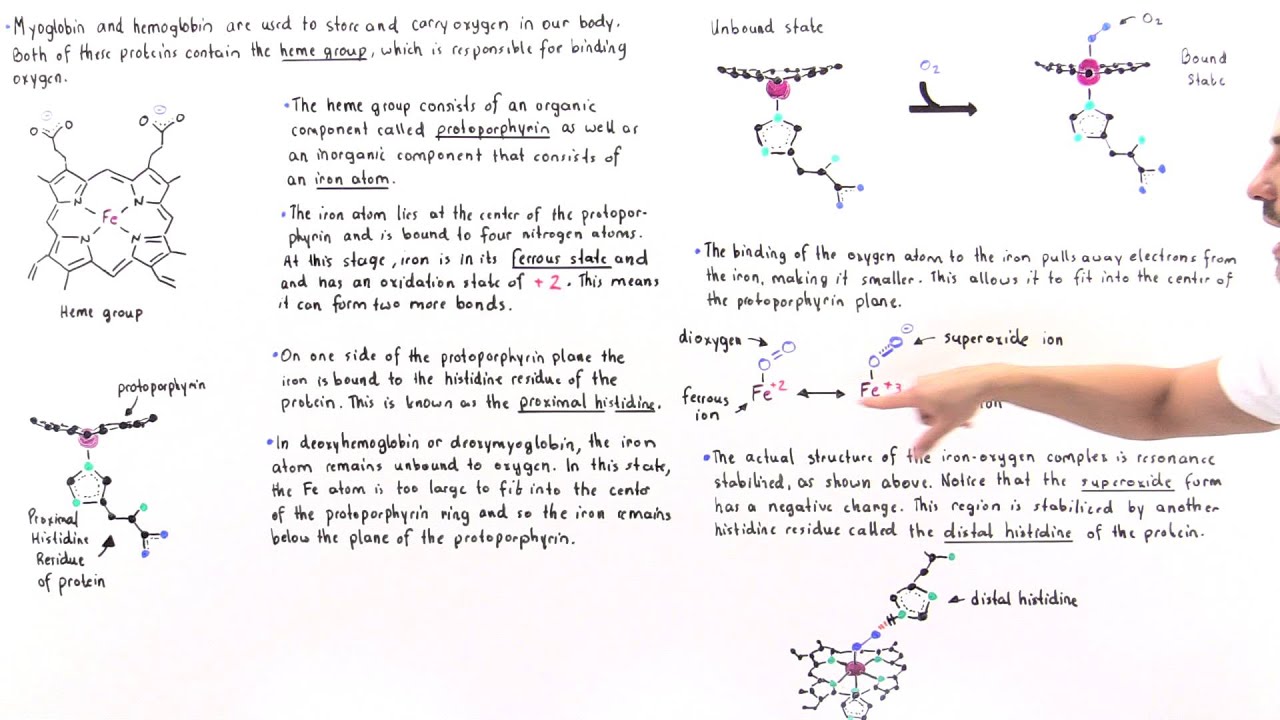 •Myoglobin and hemoglobin are used to store and carry oxygen in our body.
Both of these proteins contain the heme group, which is responsible for binding
oxygen.
O O
O O
N N
Fe
N N
Heme group
•The heme group consists of an organic
component called protoporphyrin as well as
an inorganic component that consists of
an iron atom.
•The iron atom lies at the center of the protopor-
phyrin and is bound to four nitrogen atoms.
At this stage, iron is in its ferrous state and
and has an oxidation state of +2. This means
it can form two more bonds.
•On one side of the protoporphyrin plane the
iron is bound to the histidine residue of the
protein. This is known as the proximal histidine.
•In deoxyhemoglobin or deoxymyoglobin, the iron
atom remains unbound to oxygen. In this state,
the Fe atom is too large to fit into the center
of the protoporphyrin ring and so the iron remains
below the plane of the protoporphyrin.
protoporphyrin
Proximal
Histidine
Residue
of protein
Unbound state
O2
O2
Bound
State
•The binding of the oxygen atom to the iron pulls away electrons from
the iron, making it smaller. This allows it to fit into the center of
the protoporphyrin plane.
dioxygen
superoxide ion
Fe+2
Fe+3
ferrous
ion
ion
•The actual structure of the iron-oxygen complex is resonance
stabilized, as shown above. Notice that the superoxide form
has a negative charge. This region is stabilized by another
histidine residue called the distal histidine of the protein.
H
distal histidine